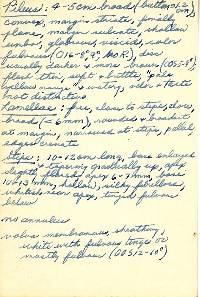 Pileus: 4-5 cm broad (button 1.2
convex, margin striate, finally
plane, margin sulcate, shallow
umbo, glabrous, viscid, color
fulvous
usually darker, more brown
flesh thin, soft + brittle, pale
yellow + watery, odor + taste
not distinctive
Lamellae: free, close to stipe, close,
broad (= 6 mm), rounded + broadest
at margin, narrowed at stipe, pallid,
edges
Stipe: 10-12 cm long, base enlarged
tapering gradually up, apex
slightly flared, apex 6-7 mm, base
10-13 mm, hollow, silky fibrillose,
whitish near apex, tinged fulvous
below
no annulus
volva membranous, sheathing,
white with fulvous tinges or
mostly fulvous (OOS 12-10°)